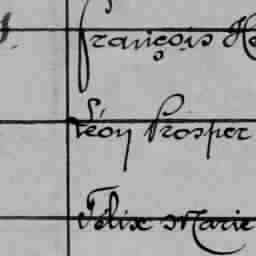 François
Léon Prosper
Félix Marie